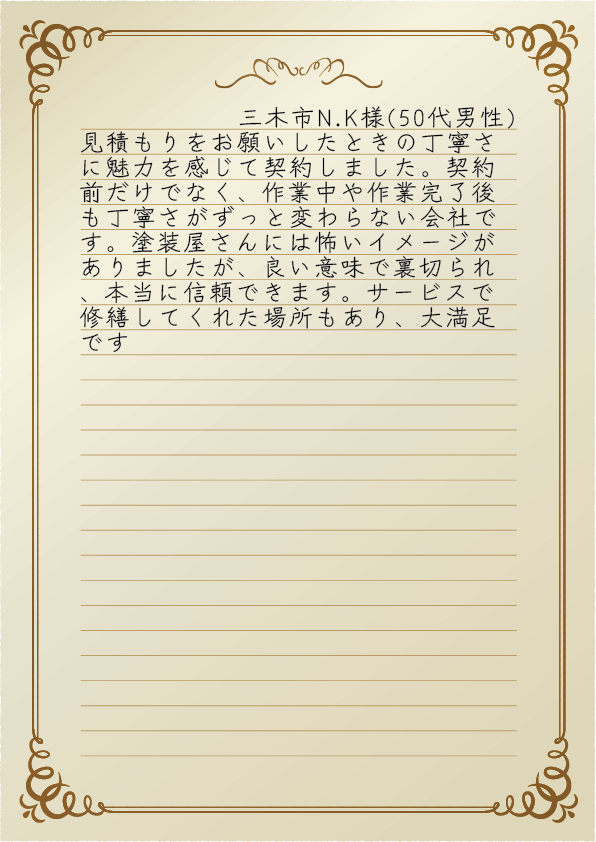 三木市N.K様(50代男性)
見積もりをお願いしたときの丁寧さ
に魅力を感じて契約しました。契約
前だけでなく、作業中や作業完了後
も丁寧さがずっと変わらない会社で
す。塗装屋さんには怖いイメージが
ありましたが、良い意味で裏切られ
、本当に信頼できます。サービスで
修繕してくれた場所もあり、大満足
です